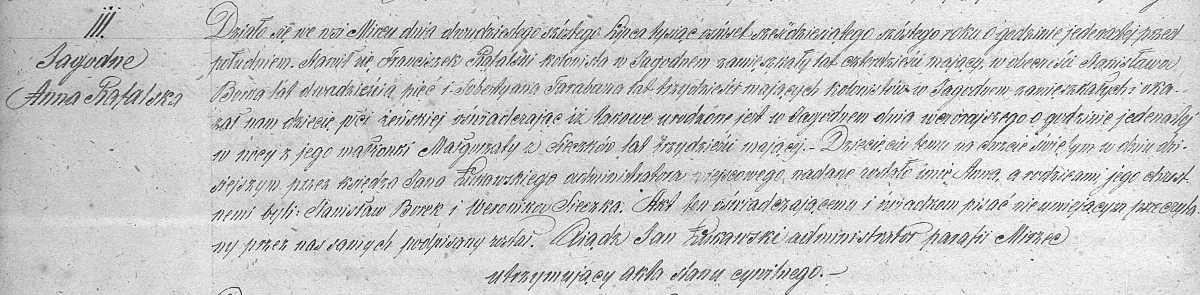 111.
Jagodne
Anna Rafalska
Działo się we wsi Mircu dnia dwudziestego szóstego Lipca tysiąc ośmset sześćdziesiątego szóstego roku o godzinie jedenastej przed
południem. Stawił się Franciszek Rafalski kolonista w Jagodnem zamieszkały lat czterdzieści mający, w obecności Stanisława
Borka lat dwadzieścia pięć i Sobestyana Tarabana lat trzydzieści mających kolonistów w Jagodnem zamieszkałych i oka-
zał nam dziecię płci żeńskiej oświadczając iż takowe urodzone jest w Jagodnem dnia wczorajszego o godzinie jedenastej
w nocy z jego małżonki Małgorzaty z Sieczków lat trzydzieści mający.- Dziecięciu temu na chrzcie świętym w dniu dzi-
siejszym przez księdza Jana administratora miejscowego, nadane zostało imię Anna, a rodzicami jego chrzest-
nemi byli: Stanisław Borek i Weronika Sieczka. Akt ten oświadczającemu i świadkom pisać nie umiejącym przeczyta-
ny przez nas samych podpisany został. Ksiądz Jan administrator parafii Mirzec
utrzymujący akta stanu cywilnego.-